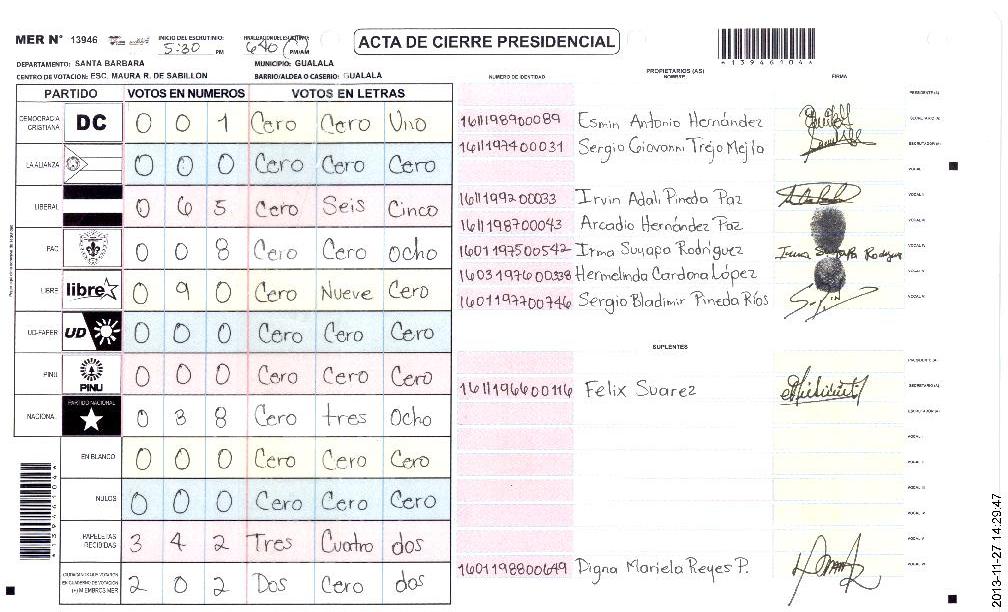 MER N° 13946
INICIO DEL ESCRUTINIO:
5:30 PM
640 PM/AM
ACTA DE CIERRE PRESIDENCIAL
*13946104*
DEPARTAMENTO: SANTA BARBARA MUNICIPIO: GUALALA
CENTRO DE VOTACION: ESC. MAURA R. DE SABILLON BARRIO/ALDEA O CASERIO: GUALALA
NUMERO DE IDENTIDAD PROPIETARIOS (AS) NOMBRE FIRMA
PARTIDO VOTOS EN NUMEROS VOTOS EN LETRAS
DEMOCRACIA CRISTIANA DC 0 0 1 Cero Cero Uno
LA ALIANZA 0 0 0 Cero Cero Cero
LIBERAL 0 6 5 Cero Seis Cinco
PAC 0 0 8 Cero Cero Ocho
LIBRE libre 0 9 0 Cero Nueve Cero
UD-FAPER UD 0 0 0 Cero Cero Cero
PINU PINU 0 0 0 Cero Cero Cero
NACIONAL PARTIDO NACIONAL 0 3 8 Cero tres Ocho
EN BLANCO 0 0 0 Cero Cero Cero
NULOS 0 0 0 Cero Cero Cero
PAPELETAS RECIBIDAS 3 4 2 Tres Cuatro dos
CIUDADANOS QUE VOTARON EN CUADERNO DE VOTACION (+) MIEMBROS MER 2 0 2 Dos Cero dos
*13946104*
PRESIDENTE (A)
1611198900089 Esmin Antonio Hernández SECRETARIO (A)
1611197400031 Sergio Giovanni Trejo Mejilo ESCRUTADOR (A)
VOCAL I
1611199200033 Irvin Adali Pineda Paz VOCAL II
1611198700043 Arcadio Hernández Paz VOCAL III
1601197500542 Irma Suyapa Rodríguez Irma Suyapa Rodrigue VOCAL IV
1603197600338 Hermelinda Cardona López VOCAL V
1601197700746 Sergio Bladimir Pineda Ríos VOCAL VI
SUPLENTES
PRESIDENTE (A)
1611196600116 Felix Suarez SECRETARIO (A)
ESCRUTADOR (A)
VOCAL I
VOCAL II
VOCAL III
VOCAL IV
VOCAL V
1601198800649 Digna Mariela Reyes P. VOCAL VI
2013-11-27 14:29:47